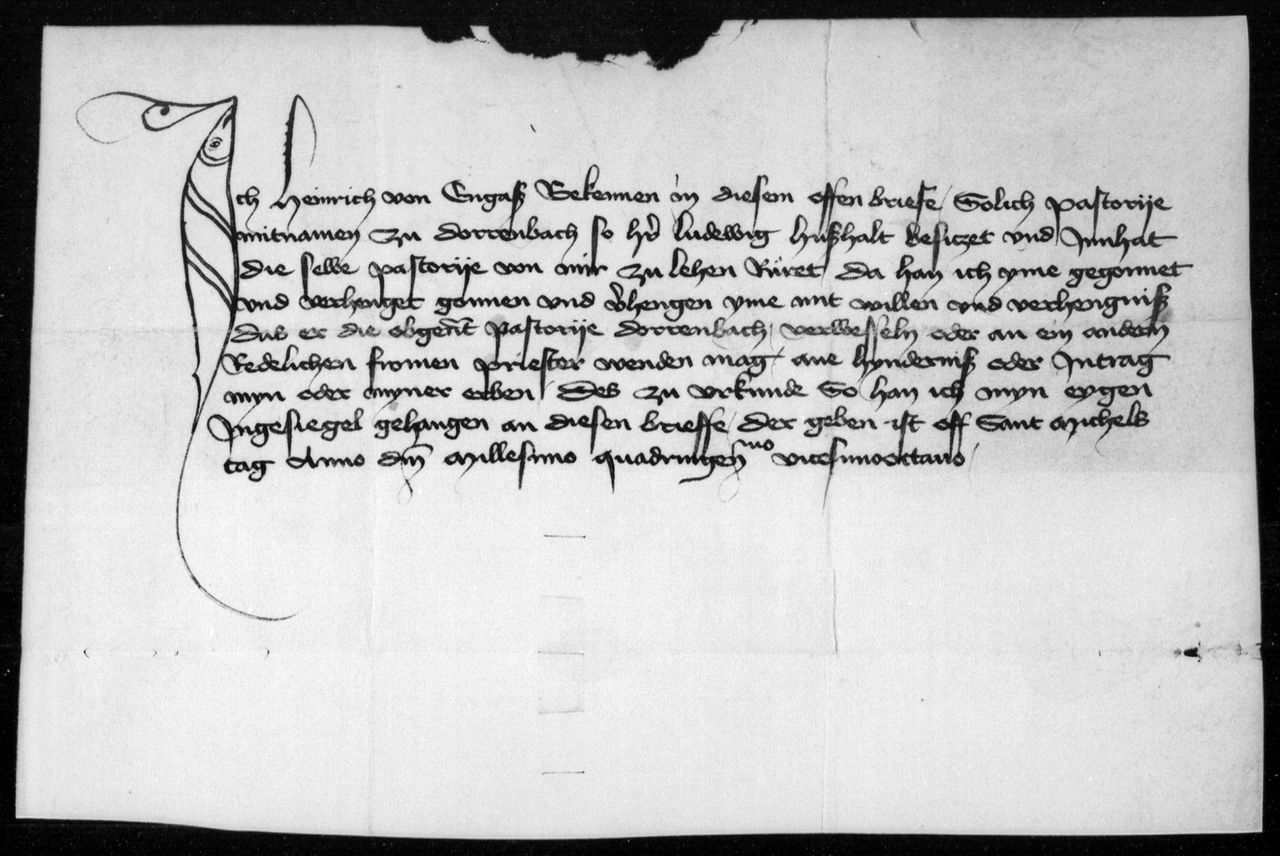 Ich Heinrich von Engaß Bekennen in diesem offen brieffe / Solich pastorije
mitnamen zu dorrenbach so h'r ludewig hußhalt besiczet vnd Innhat
die selbe pastorije von mir zu lehen Ruret da han ich yme gegonnet
vnd verhenget gonnen vnd v'hengen yme mit willen vnd verhengniß
das er die obgen̄t pastorije dorrenbach / verwesseln oder an ein andern
Redelichen fromen priester wenden mag / ane hynderniß oder Intrag
myn oder myner erben / Des zu vrkunde So han ich myn eygen
Ingesiegel gehangen an diesen brieffe / der geben ist off Sant Michels
tag Anno dm̄ Millesimo quadringen̄mo vicesimooctauo /